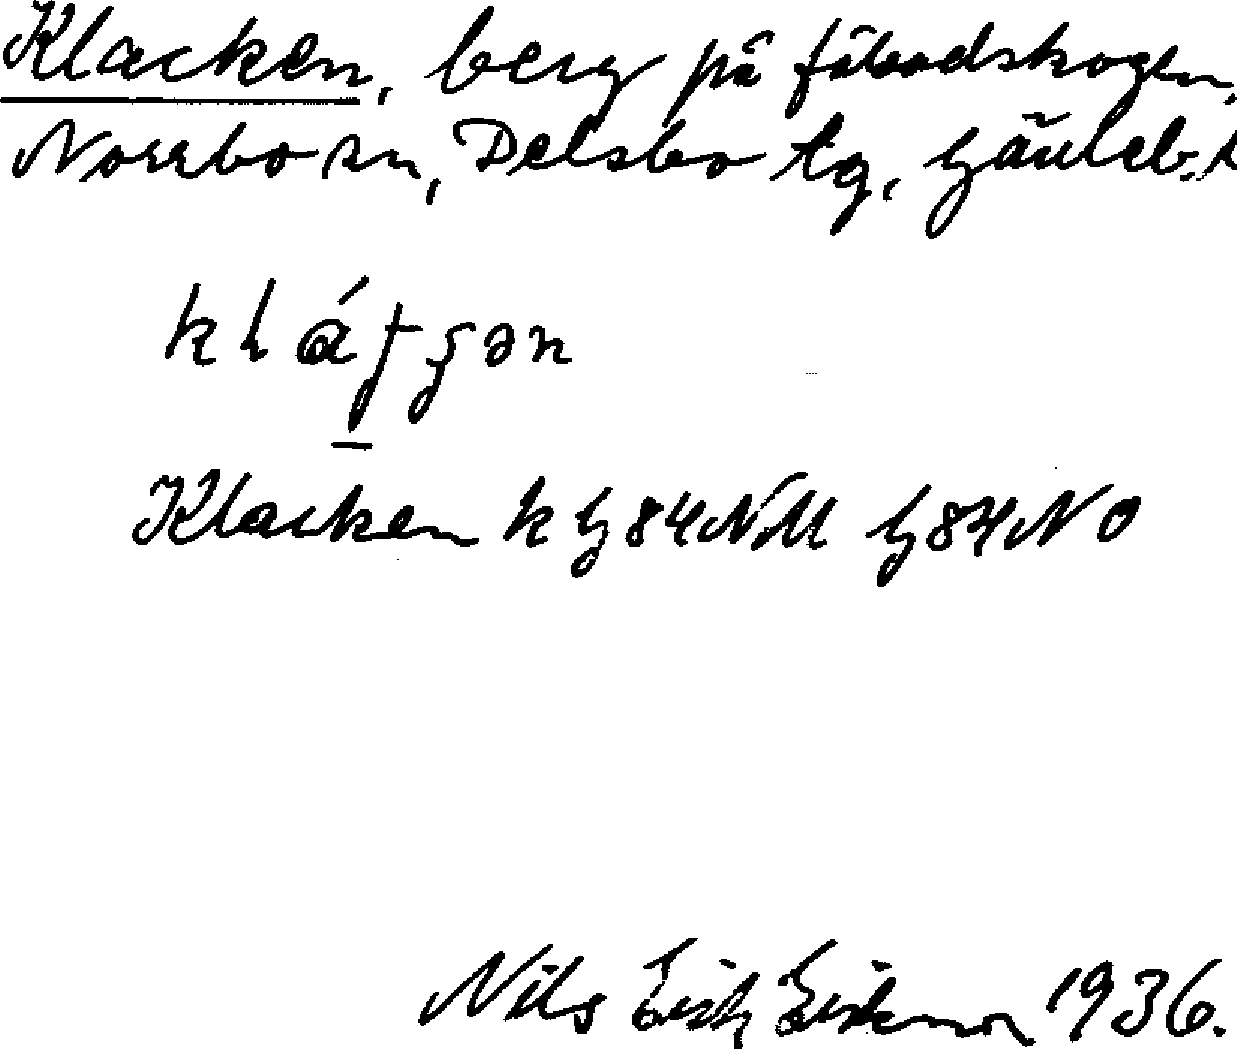 Klacken, berg på fäbodskogen,
Norrbo sn, Delsbo tg, Gävleb. l
Klacken k G 84 NM G 84 NO
Nils Erik 1936.